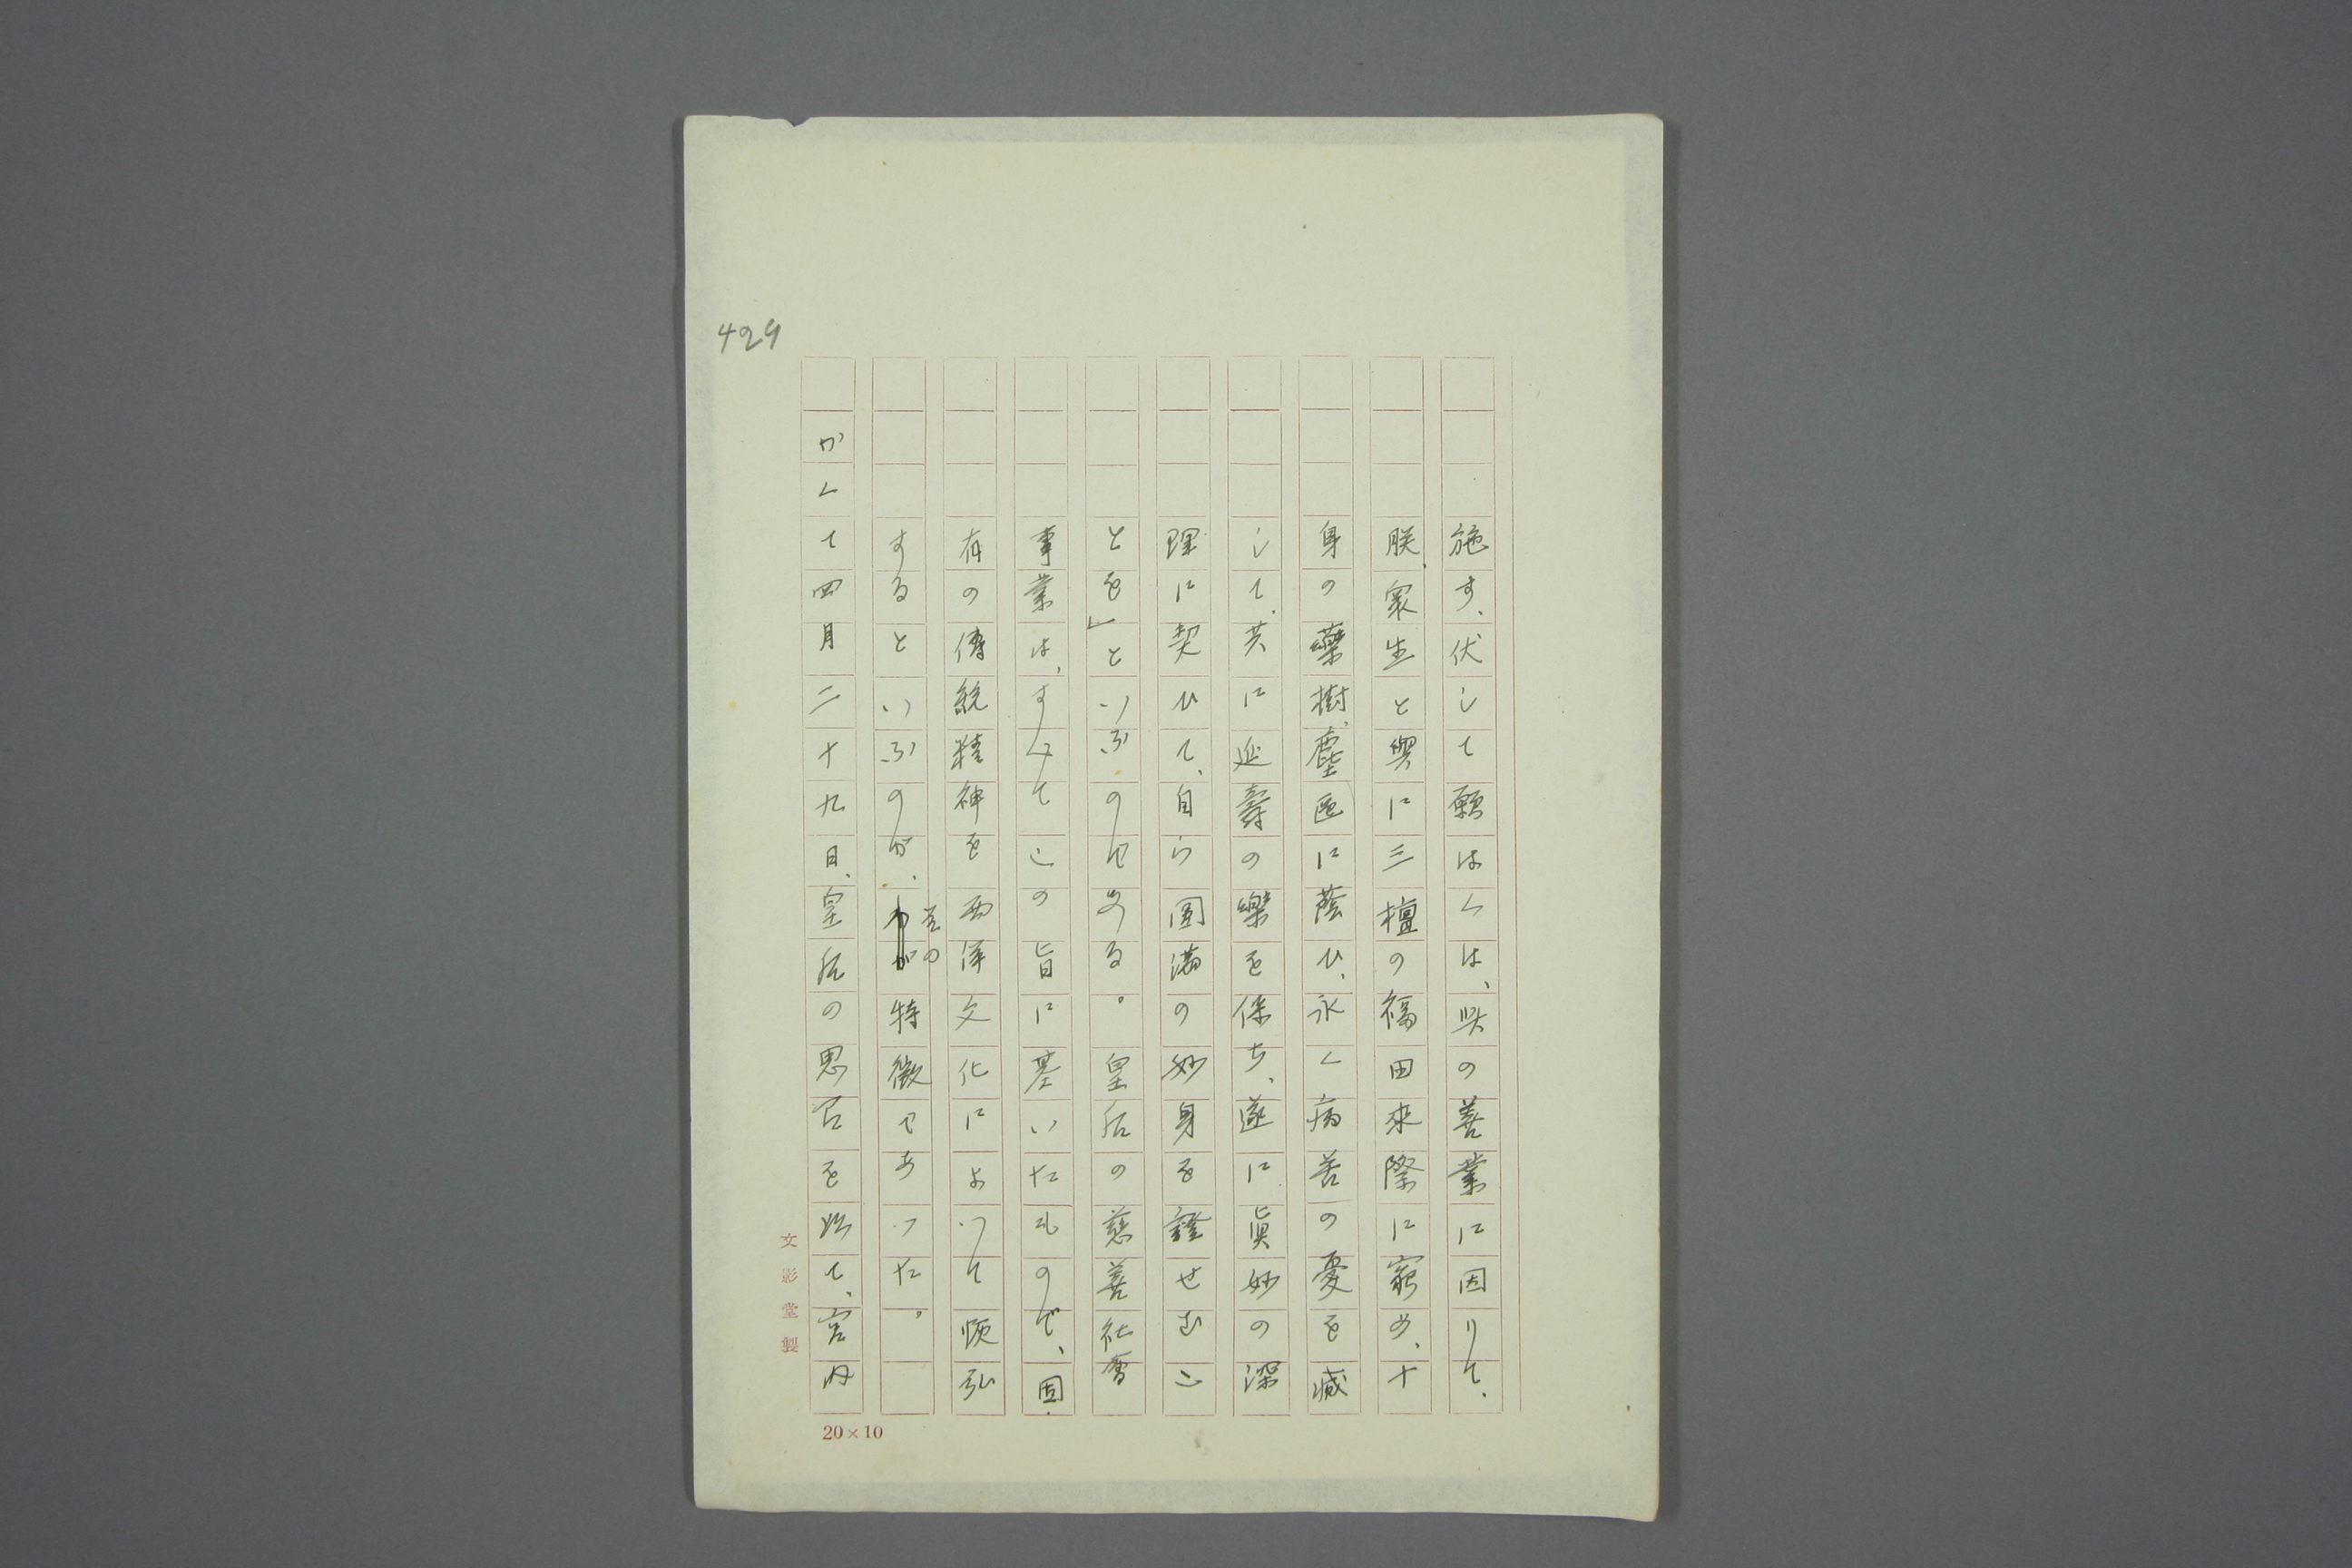 429
施す、伏して願はくは、此の善業に因りて、
朕、衆生と與に三檀の福田來際に窮め、十
身の藥樹、塵區に蔭ひ、永く病苦の憂を滅
して、共に延壽の樂を保ち、遂に眞妙の深
理に契ひて、自ら圓滿の妙身を證せむこ
とを」といふのである。皇后の慈善社會
事業は、すべてこの旨に基いたもので、固
有の傳統精神を西洋文化によつて
するといふのが、その特徴であつた。
かくて四月二十九日、皇后の思召を以て、宮内
文影堂製
20×10